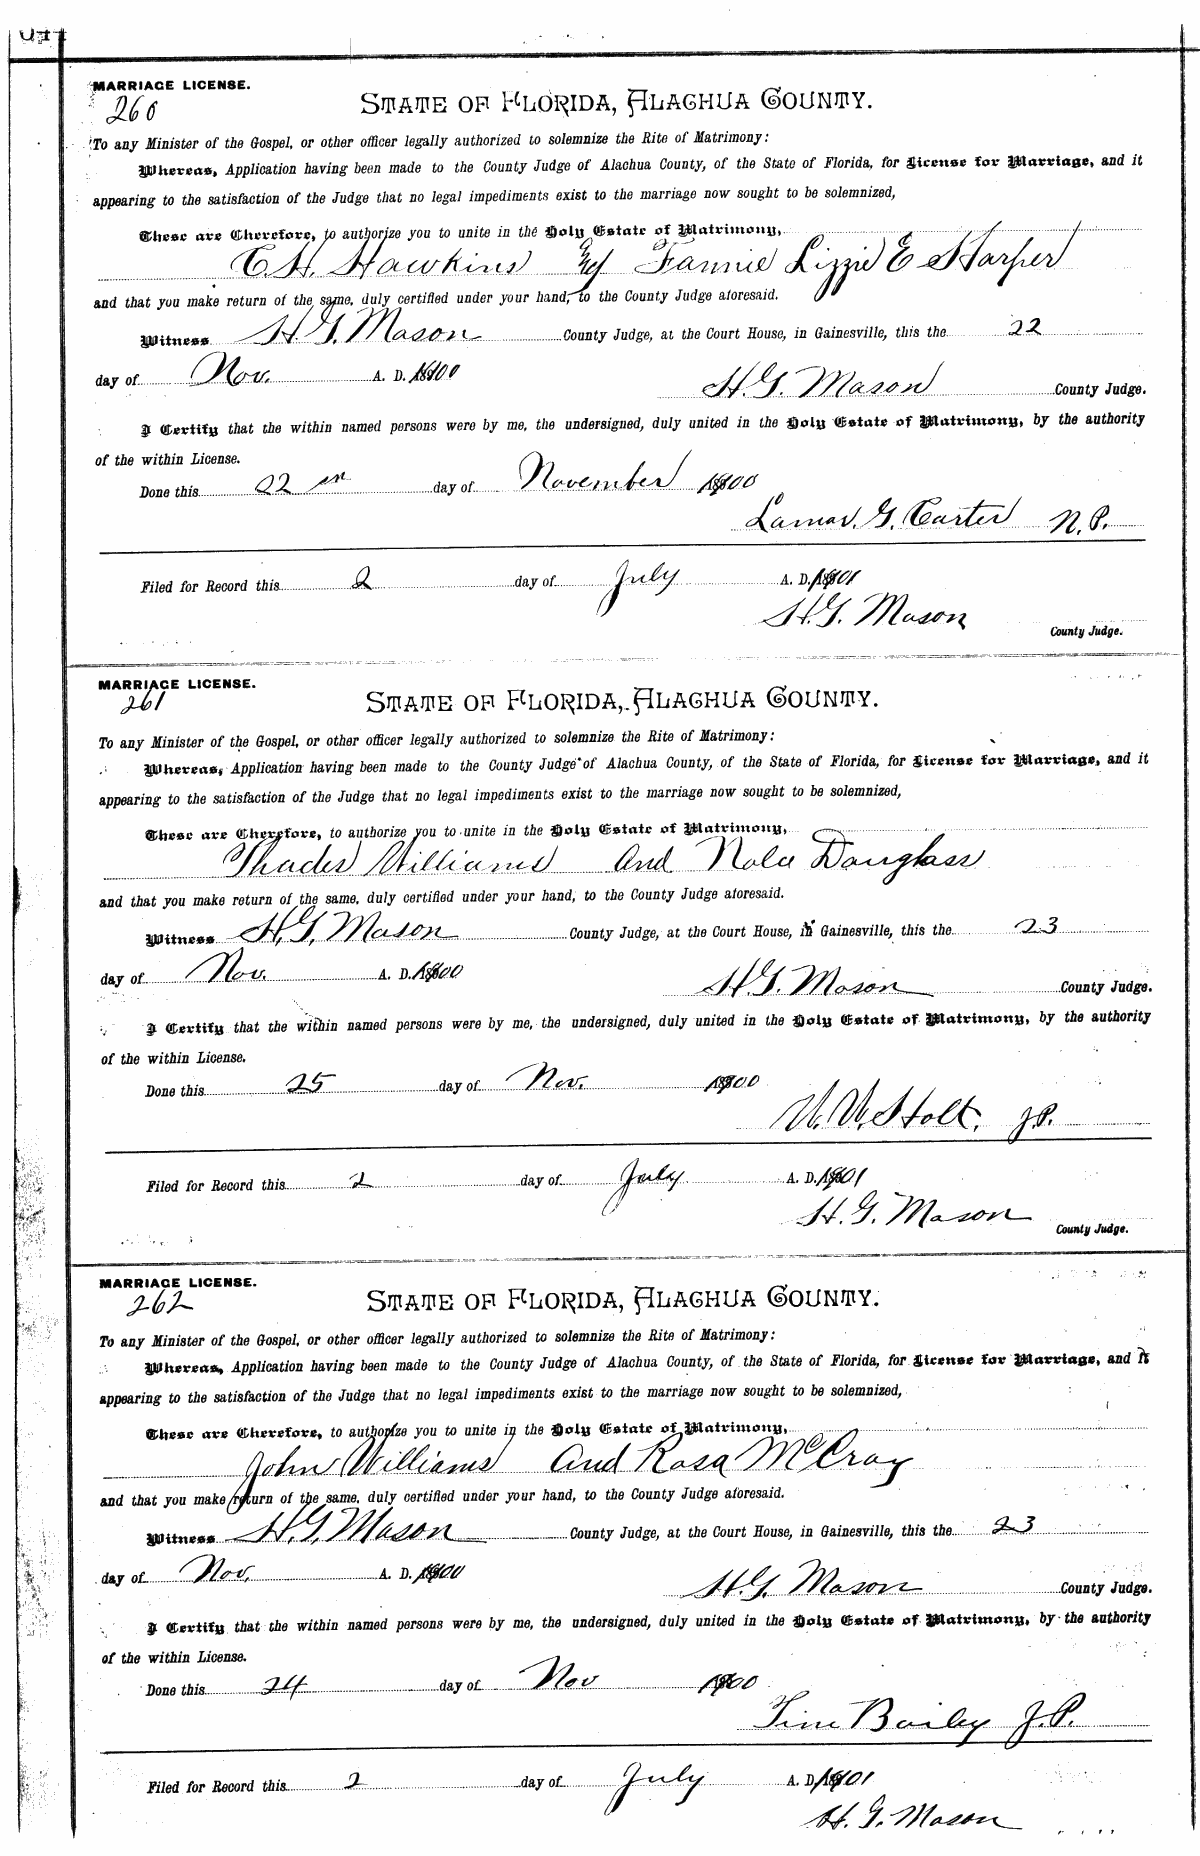 MARRIAGE LICENSE.
260
STATE OF FLORIDA, ALACHUA COUNTY.
To any Minister of the Gospel, or other officer legally authorized to solemnize the Rite of Matrimony:
Whereas, Application having been made to the County Judge of Alachua County, of the State of Florida, for License for Marriage, and it
appearing to the satisfaction of the Judge that no legal impediments exist to the marriage now sought to be solemnized,
These are Therefore, to authorize you to unite in the Holy Estate of Matrimony,
C. H. Hawkins & Fannie Lizzie E Harper
and that you make return of the same, duly certified under your hand, to the County Judge aforesaid.
Witness H. G. Mason County Judge, at the Court House, in Gainesville, this the 22
day of Nov. A. D. 1900 H. G. Mason County Judge.
I Certify that the within named persons were by me, the undersigned, duly united in the Holy Estate of Matrimony, by the authority
of the within License.
Done this 22 day of November 1900
Lamar. G. Carter N.P.
Filed for Record this 2 day of July A. D. 1901
H. G. Mason
County Judge.
MARRIAGE LICENSE.
261
STATE OF FLORIDA, ALACHUA COUNTY.
To any Minister of the Gospel, or other officer legally authorized to solemnize the Rite of Matrimony:
Whereas, Application having been made to the County Judge of Alachua County, of the State of Florida, for License for Marriage, and it
appearing to the satisfaction of the Judge that no legal impediments exist to the marriage now sought to be solemnized,
These are Therefore, to authorize you to unite in the Holy Estate of Matrimony,
Thades Williams and Nola Douglass
and that you make return of the same, duly certified under your hand, to the County Judge aforesaid.
Witness H. G. Mason County Judge, at the Court House, in Gainesville, this the 23
day of Nov. A. D. 1900 H. G. Mason County Judge.
I Certify that the within named persons were by me, the undersigned, duly united in the Holy Estate of Matrimony, by the authority
of the within License.
Done this 25 day of Nov. 1900
W. W. Holt, J.P.
Filed for Record this 2 day of July A. D. 1901
H. G. Mason
County Judge.
MARRIAGE LICENSE.
262
STATE OF FLORIDA, ALACHUA COUNTY.
To any Minister of the Gospel, or other officer legally authorized to solemnize the Rite of Matrimony:
Whereas, Application having been made to the County Judge of Alachua County, of the State of Florida, for License for Marriage, and it
appearing to the satisfaction of the Judge that no legal impediments exist to the marriage now sought to be solemnized,
These are Therefore, to authorize you to unite in the Holy Estate of Matrimony,
John Williams and Rosa McCray
and that you make return of the same, duly certified under your hand, to the County Judge aforesaid.
Witness H. G. Mason County Judge, at the Court House, in Gainesville, this the 23
day of Nov. A. D. 1900 H. G. Mason County Judge.
I Certify that the within named persons were by me, the undersigned, duly united in the Holy Estate of Matrimony, by the authority
of the within License.
Done this 24 day of Nov 1900
Tine Bailey J.P.
Filed for Record this 2 day of July A. D. 1901
H. G. Mason